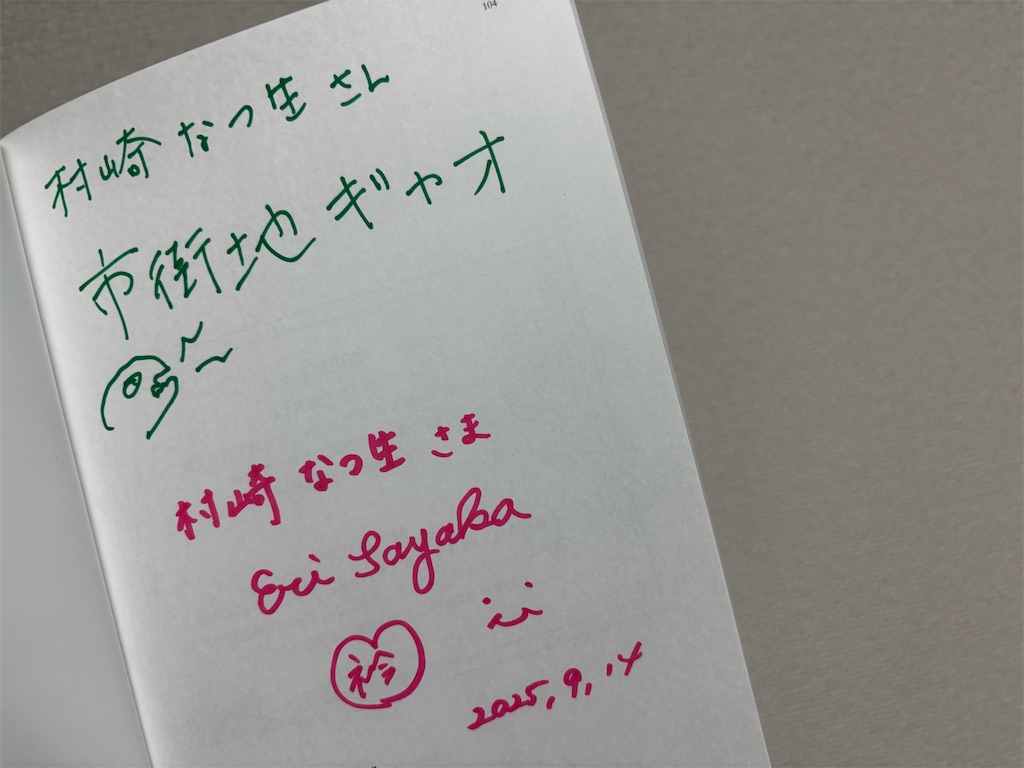 104
村崎 なつ生 さん
市街地ギャオ
村崎 なつ生 さま
Eri Sayaka
衿
2025.9.14